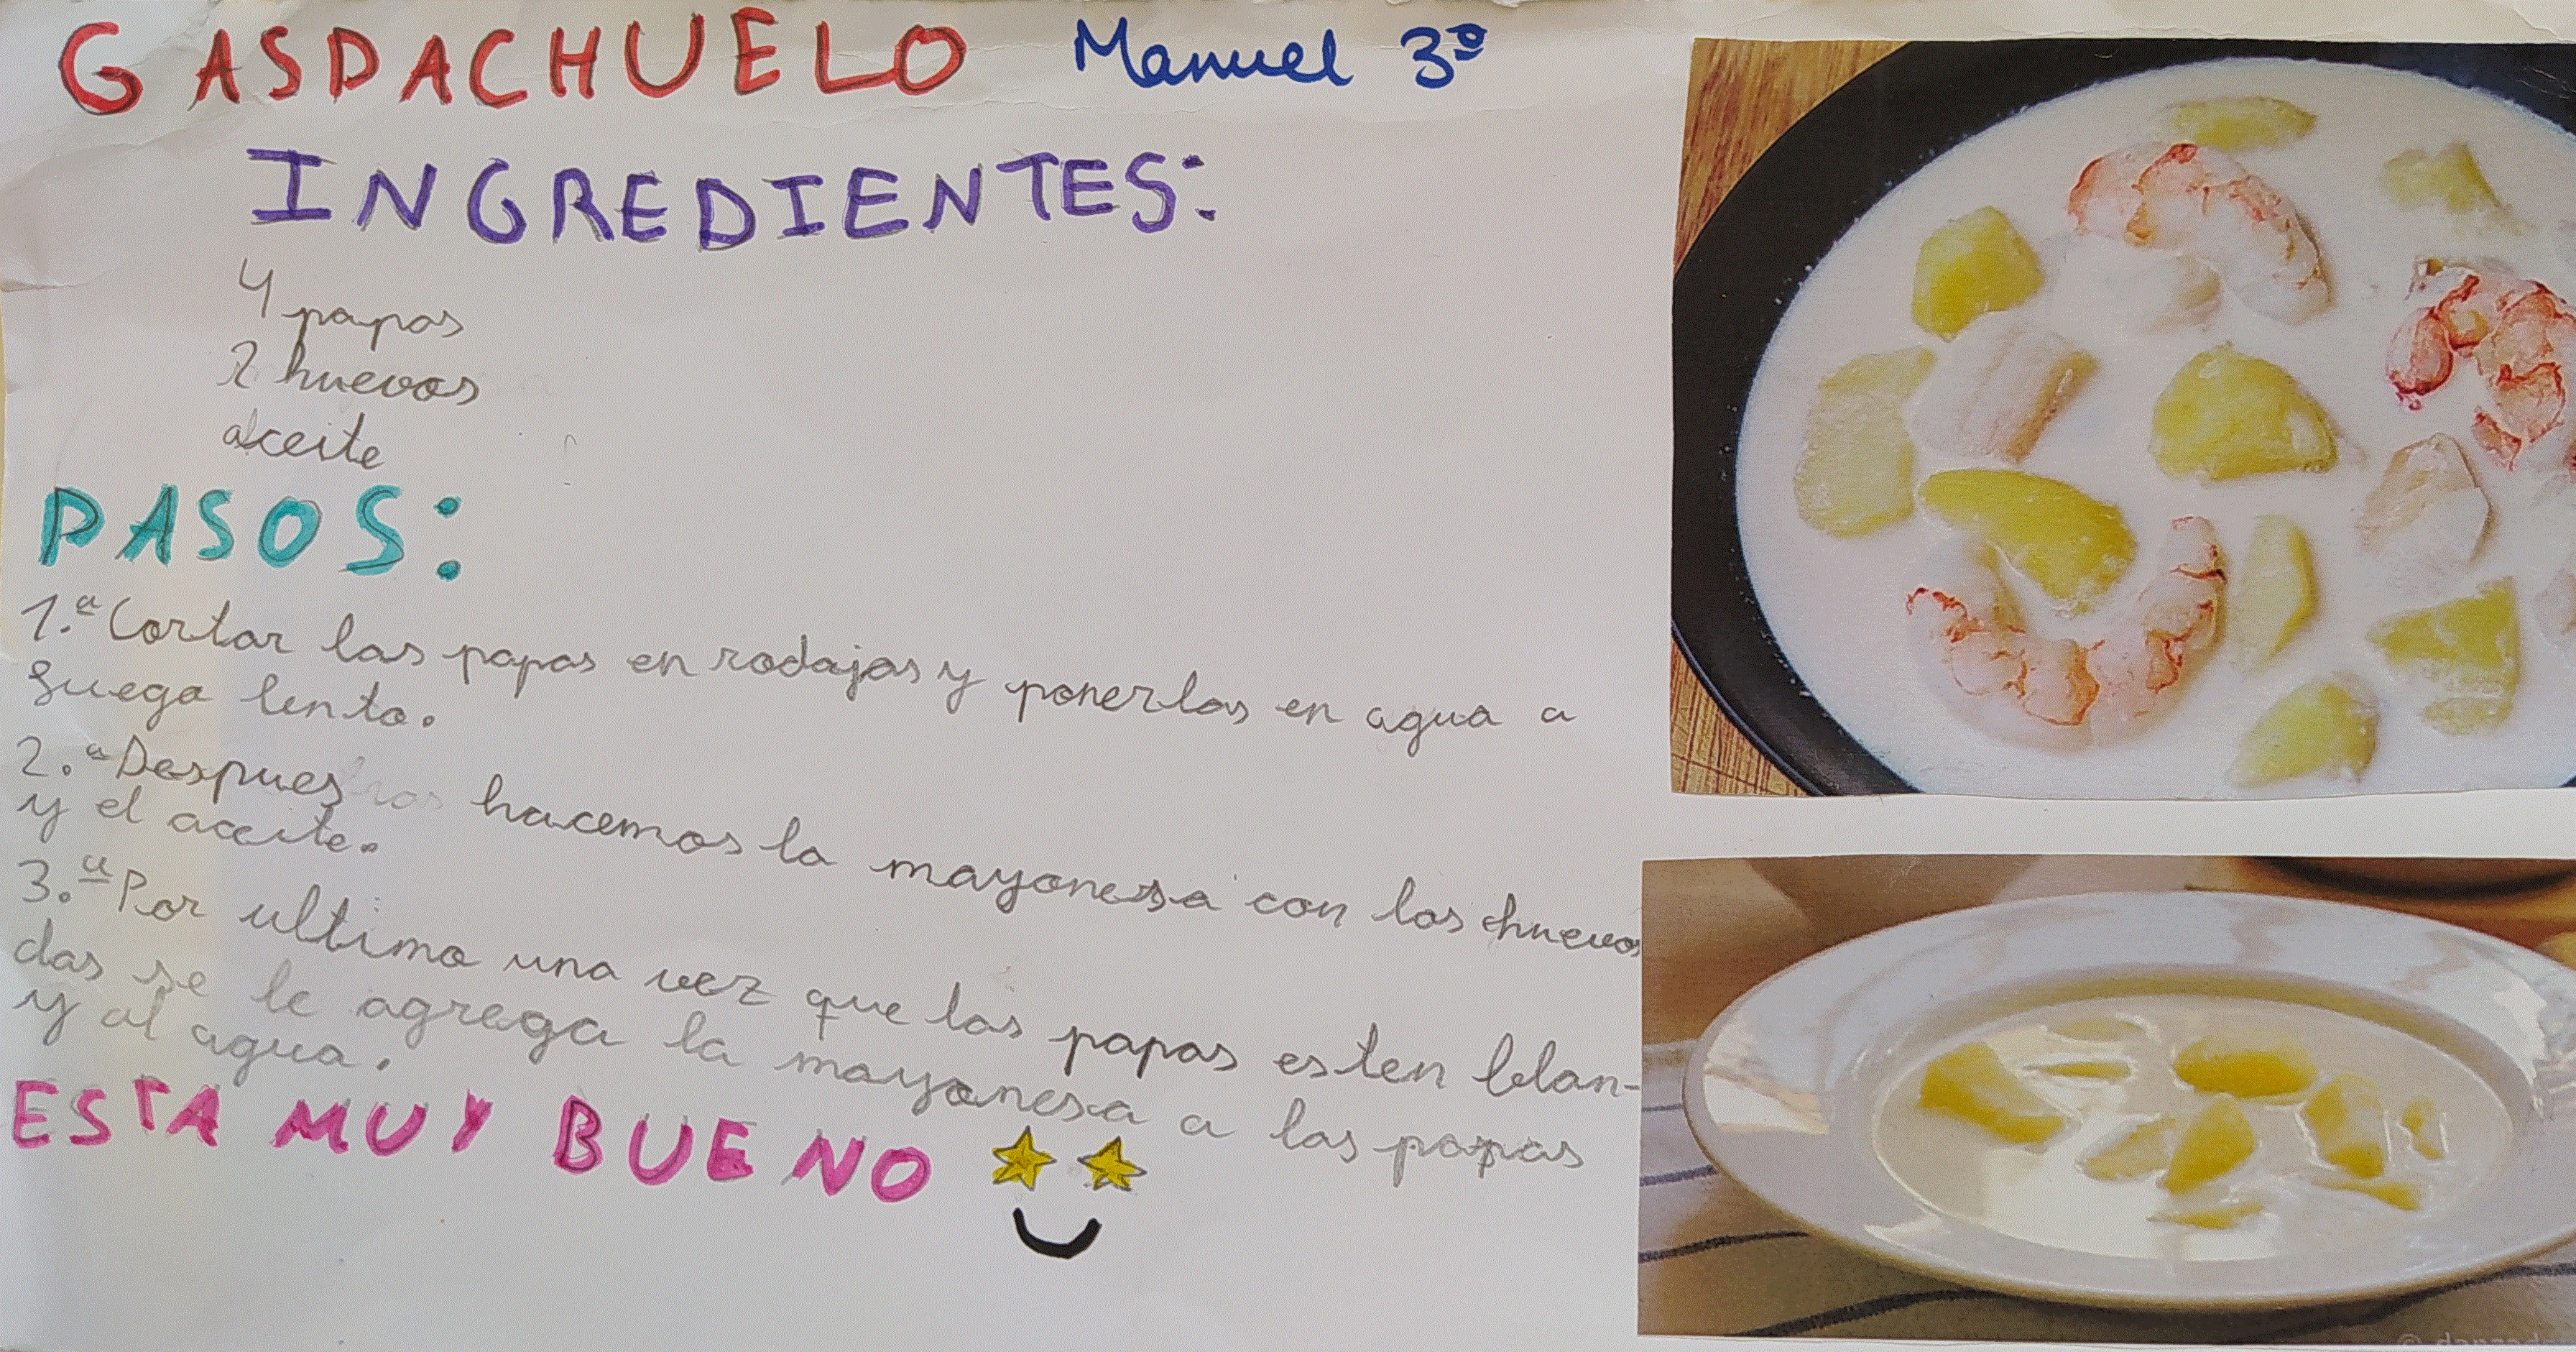 GASDACHUELO Manuel 3º
INGREDIENTES:
4 papas
2 huevos
aceite
PASOS:
1.ª Cortar las papas en rodajas y ponerlas en agua a
fuego lento.
2.ª Despues hacemos la mayonesa con los huevos
y el aceite.
3.ª Por ultimo una vez que las papas esten blan-
das se le agrega la mayonesa a las papas
y al agua.
ESTA MUY BUENO